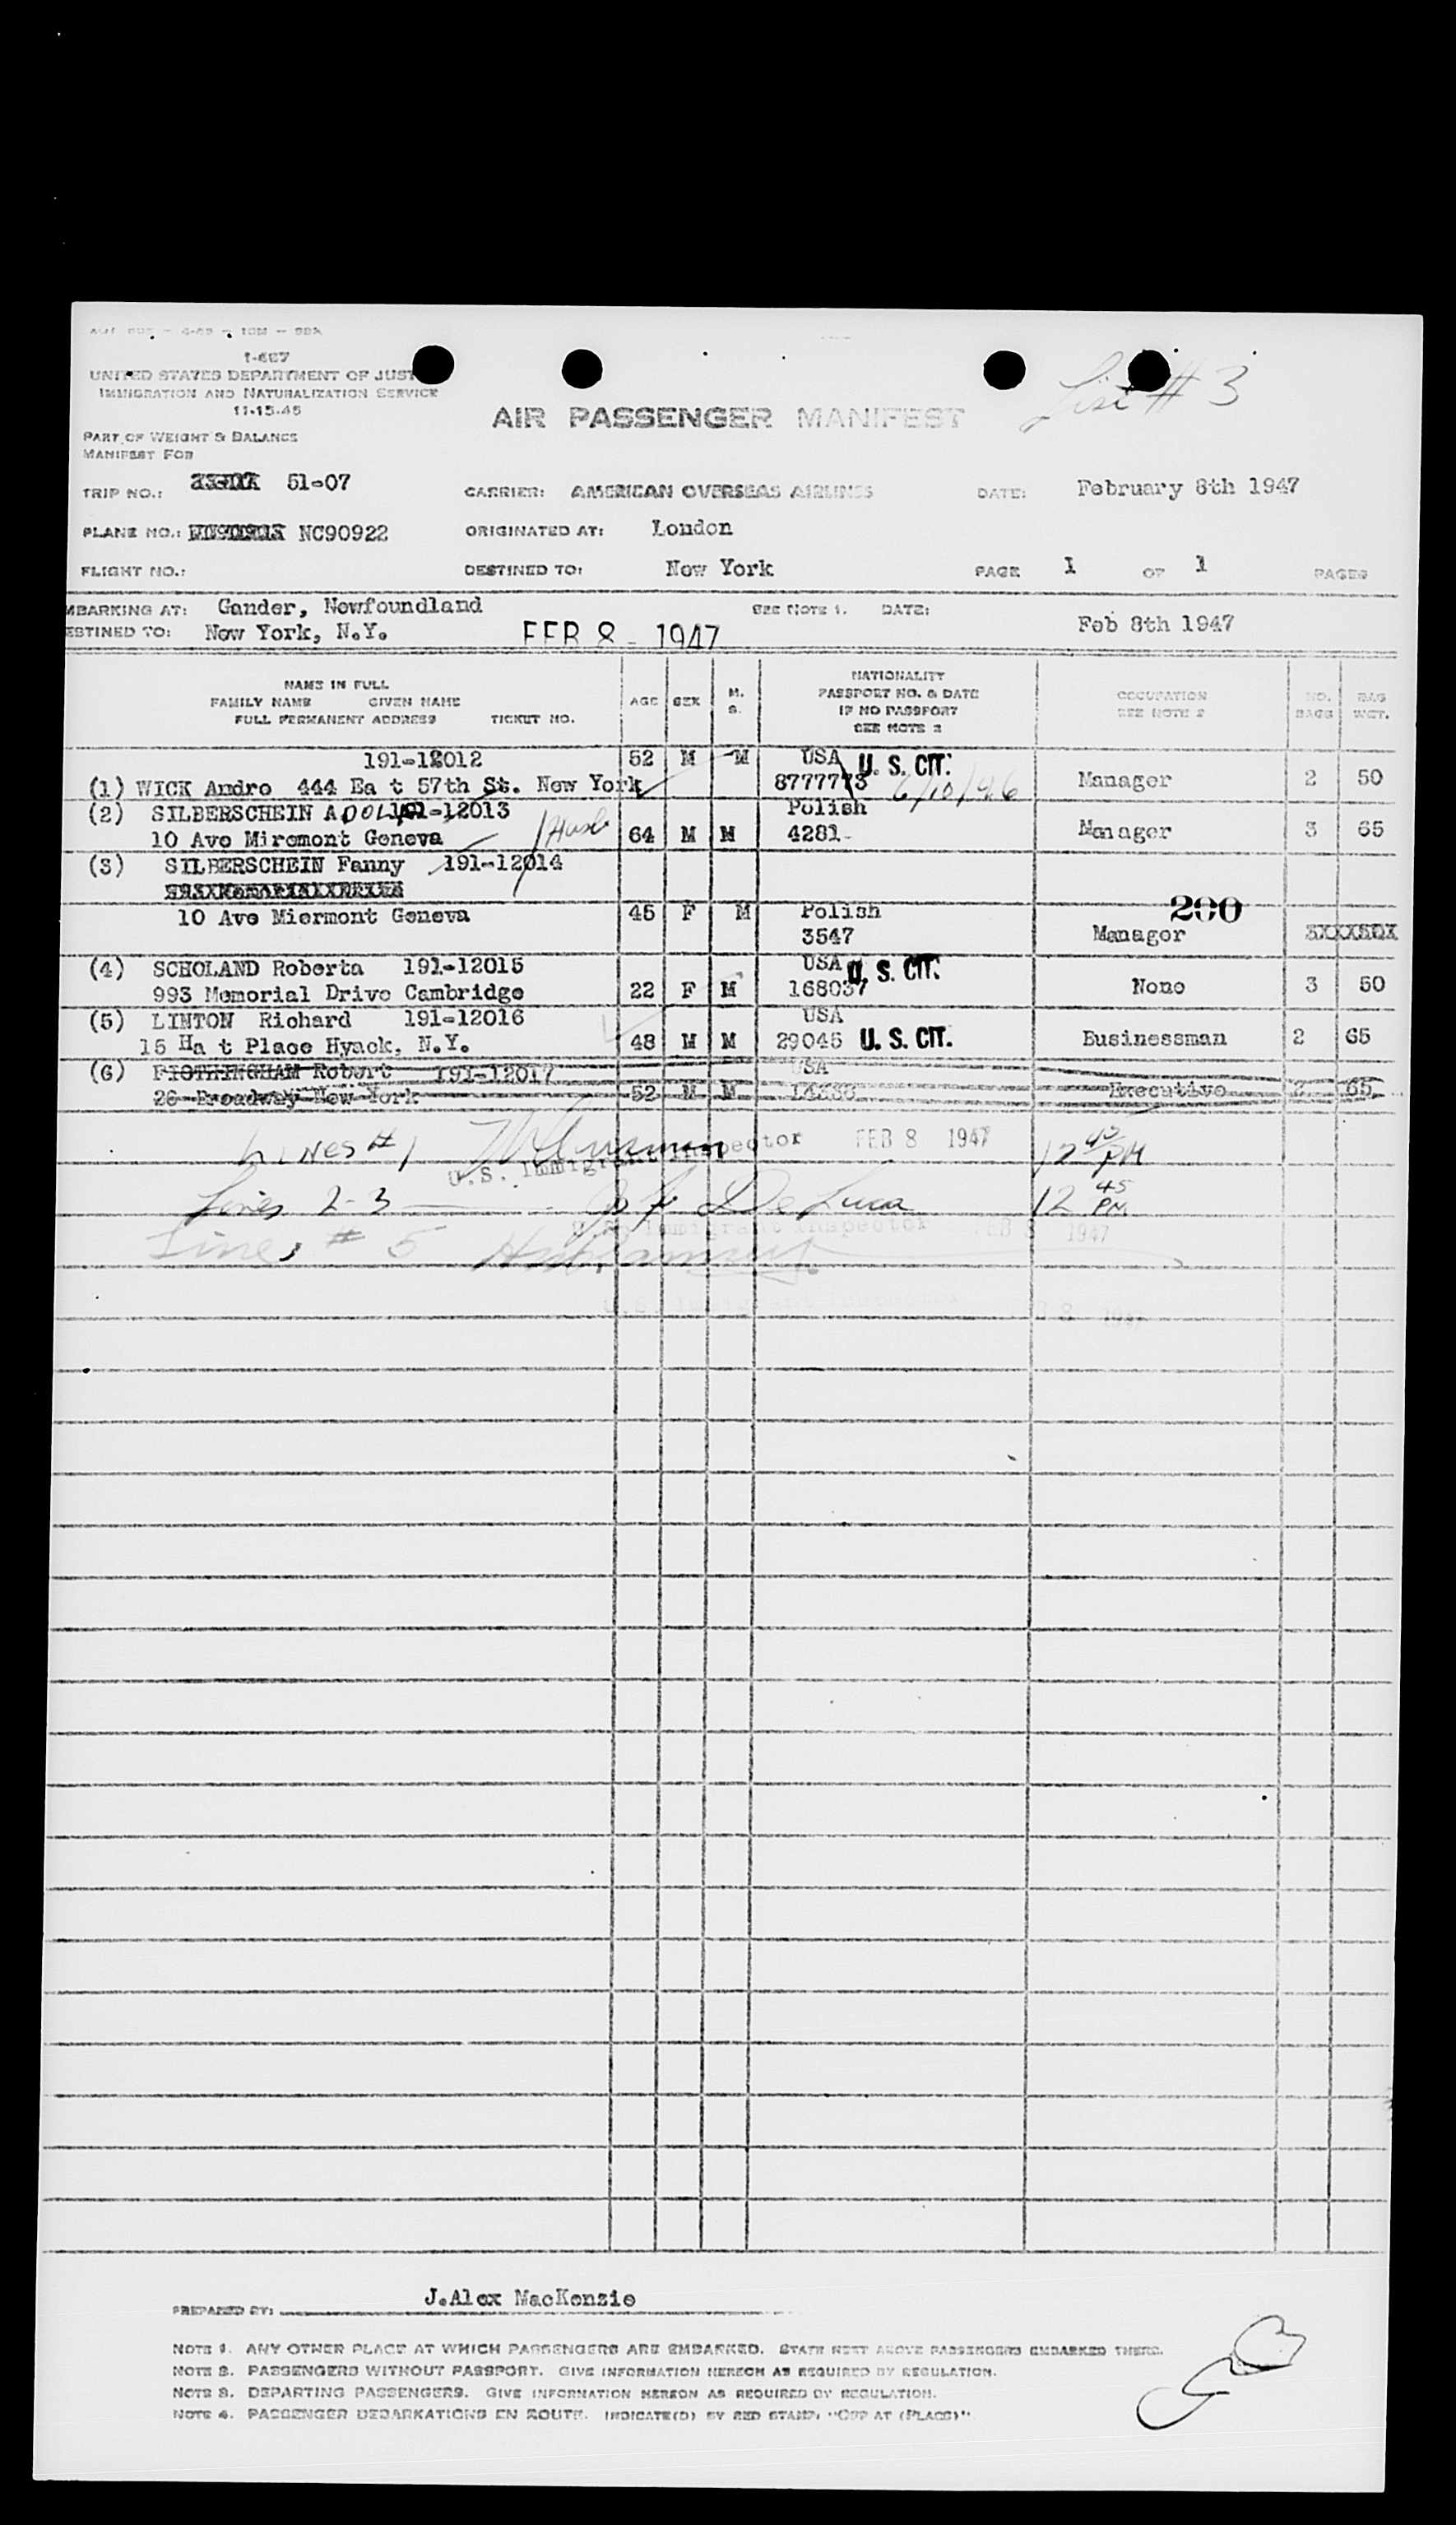 I-607
UNITED STATES DEPARTMENT OF JUST
IMMIGRATION AND NATURALIZATION SERVICE
11-15-45
AIR PASSENGER MANIFEST
List # 3
PART OF WEIGHT & BALANCE
MANIFEST FOR
TRIP NO.: 51-07 CARRIER: AMERICAN OVERSEAS AIRLINES DATE: February 8th 1947
PLANE NO.: NC90922 ORIGINATED AT: London
FLIGHT NO.: DESTINED TO: New York PAGE 1 OF 1 PAGES
MBARKING AT: Gander, Newfoundland SEE NOTE 1. DATE: Feb 8th 1947
ESTINED TO: New York, N.Y. FEB 8 - 1947
NAME IN FULL
FAMILY NAME GIVEN NAME
FULL PERMANENT ADDRESS TICKET NO.
AGE SEX M. S.
NATIONALITY
PASSPORT NO. & DATE
IF NO PASSPORT
SEE NOTE 2
OCCUPATION
SEE NOTE 2
NO. BAGS
BAG WGT.
191-12012 52 M M USA U. S. CIT.
(1) WICK Andre 444 Ea t 57th St. New York 8777773 6/10/46 Manager 2 50
(2) SILBERSCHEIN ADOLF 191-12013 Polish
10 Ave Miremont Geneva Husb 64 M M 4281 Manager 3 65
(3) SILBERSCHEIN Fanny 191-12014
10 Ave Miermont Geneva 45 F M Polish 200
3547 Manager
(4) SCHOLAND Roberta 191-12015 USA U. S. CIT.
993 Memorial Drive Cambridge 22 F M 168037 None 3 50
(5) LINTON Richard 191-12016 USA
15 Ha t Place Hyack, N.Y. 48 M M 29045 U. S. CIT. Businessman 2 65
(6) Robert 191-12017 USA
26 Broadway New York 52 M M Executive 2 65
Lines # 1 U.S. Immigrant Inspector FEB 8 1947 12 45 PM
Lines 2-3 De Luca 12 45 PM
U.S. Immigrant Inspector FEB 8 1947
Lines # 5
U.S. Immigrant Inspector FEB 8 1947
PREPARED BY: J.Alex MacKenzie
NOTE 1. ANY OTHER PLACE AT WHICH PASSENGERS ARE EMBARKED. STATE NEXT ABOVE PASSENGERS EMBARKED THERE.
NOTE 2. PASSENGERS WITHOUT PASSPORT. GIVE INFORMATION HEREON AS REQUIRED BY REGULATION.
NOTE 3. DEPARTING PASSENGERS. GIVE INFORMATION HEREON AS REQUIRED BY REGULATION.
NOTE 4. PASSENGER DEBARKATIONS EN ROUTE. INDICATE(D) BY RED STAMP, "OFF AT (PLACE)"